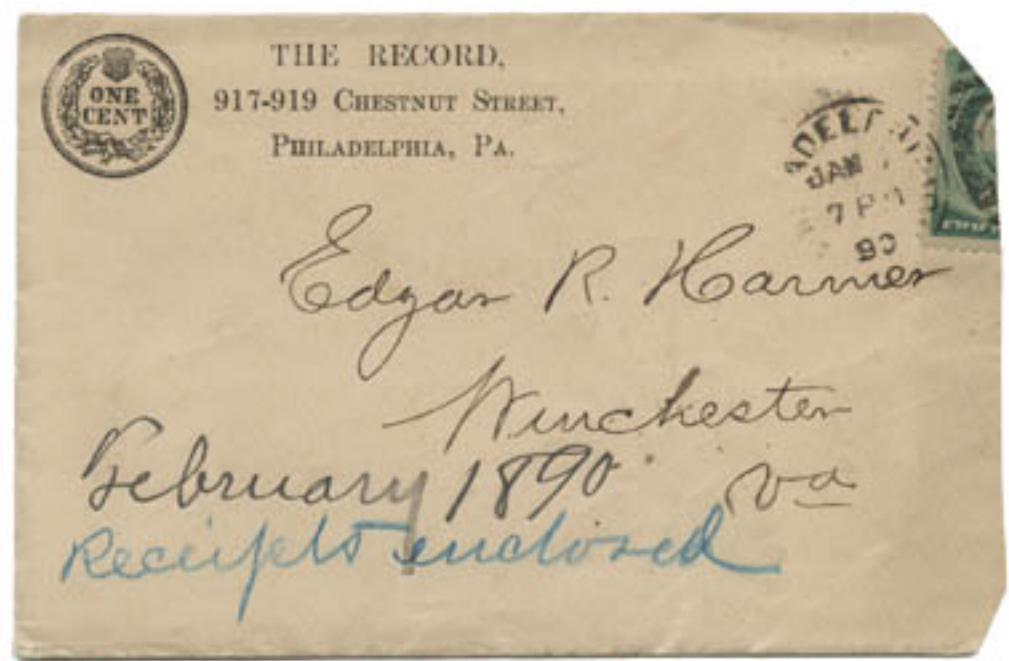 THE RECORD,
917-919 CHESTNUT STREET,
PHILADELPHIA, PA.
ONE
CENT
ADELP
JAN
7 P M
90
Edgar R. Harmer
Winchester
Va
February 1890
Receipts enclosed